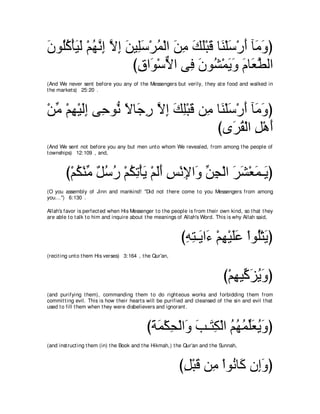 (وَمَآ أَرْسَلْنَا قَبْلَكَ مِنَ الْمُرْسَلِينَ إِلاَّ إِنَّهُمْ لَيَأْكُلُونَ
الطَّعَامَ وَيَمْشُونَ فِى الاٌّسْوَاقِ)
(And We never sent before you any of the Messengers but verily, they ate food and walked in
the markets) 25:20 .
(وَمَآ أَرْسَلْنَا مِن قَبْلِكَ إِلاَّ رِجَالاً نُّوحِى إِلَيْهِمْ مِّنْ
أَهْلِ الْقُرَى)
(And We sent not before you any but men unto whom We revealed, from among the people of
townships) 12:109 , and,
(يَـمَعْشَرَ الْجِنِّ وَالإِنْسِ أَلَمْ يَأْتِكُمْ رُسُلٌ مِّنْكُمْ)
(O you assembly of Jinn and mankind! "Did not there come to you Messengers from among
you...") 6:130 .
Allah's favor is perfected when His Messenger to the people is from their own kind, so that they
are able to talk to him and inquire about the meanings of Allah's Word. This is why Allah said,
(يَتْلُواْ عَلَيْهِمْ ءَايَـتِهِ)
(reciting unto them His verses) 3:164 , the Qur'an,
(وَيُزَكِّيهِمْ)
(and purifying them), commanding them to do righteous works and forbidding them from
committing evil. This is how their hearts will be purified and cleansed of the sin and evil that
used to fill them when they were disbelievers and ignorant.
(وَيُعَلِّمُهُمُ الْكِتَـبَ وَالْحِكْمَةَ)
(and instructing them (in) the Book and the Hikmah,) the Qur'an and the Sunnah,
(وَإِن كَانُواْ مِن قَبْلُ)